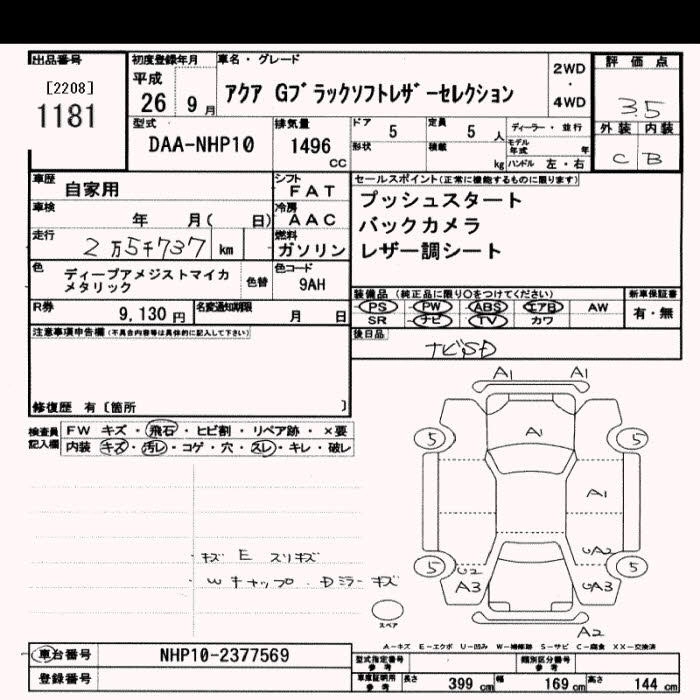 出品番号
[2208]
1181
初度登録年月
平成
26 9月
車名・グレード
アクア Gブラックソフトレザーセレクション
2WD
・
4WD
評価点
3.5
外装 内装
C B
型式
DAA-NHP10
排気量
1496
cc
ドア 5
定員 5 人
形状
積載 kg
ディーラー・並行
モデル年式 年
ハンドル 左・右
車歴 自家用
シフト FAT
車検 年 月( 日)
冷房 AAC
走行 2万5千737 km
燃料 ガソリン
色 ディープアメジストマイカ
メタリック
色替
色コード
9AH
R券 9,130 円
名変通知期限 月 日
セールスポイント(正常に機能するものに限ります)
プッシュスタート
バックカメラ
レザー調シート
装備品(純正品に限り○をつけてください)
PS PW ABS エアB AW
SR ナビ TV カワ
新車保証書
有・無
後日品
ナビSD
注意事項申告欄(不具合内容等は具体的に記入して下さい)
修復歴 有〔箇所 〕
検査員記入欄
FW キズ・飛石・ヒビ割・リペア跡・×要
内装 キズ・汚レ・コゲ・穴・スレ・キレ・破レ
・キズ E スリキズ
Wキャップ・Dミラーキズ
A1 A1
A1
5 5
A1
UA2
5 5
U2
A3 UA3
A2
スペア
A-キズ E-エクボ U-凹み W-補修跡 S-サビ C-腐食 XX-交換済
車台番号 NHP10-2377569
登録番号
型式指定番号
参考
類別区分番号
参考
車庫証明用
参考
長さ 399 cm 幅 169 cm 高さ 144 cm